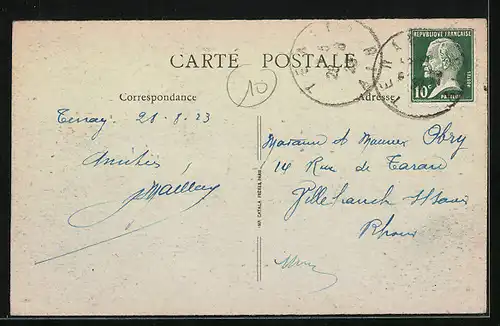 CARTE POSTALE
10
RÉPUBLIQUE FRANÇAISE
POSTES
10c
TENAY
AIN
Correspondance
Adresse
Tenay 28-8-23
Amitiés
Madame et Monsieur Obry
14 Rue de Tarare
Villefranche s/Saône
Rhône
IMP. CATALA FRÈRES, PARIS